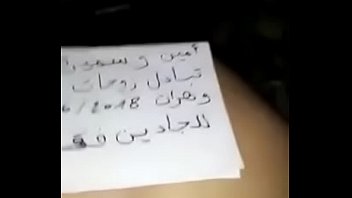 أمين و سميرة
تبادل زوجات
وهران 6/2018
للجادين فقط